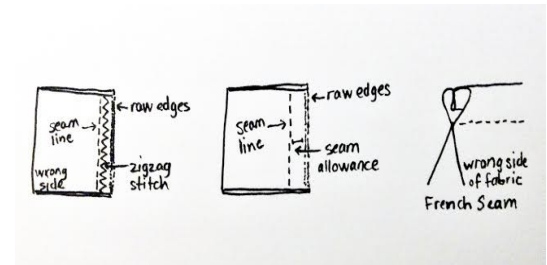 seam
line
wrong
side
raw edges
zigzag
stitch
seam
line
raw edges
seam
allowance
wrong side
of fabric
French Seam